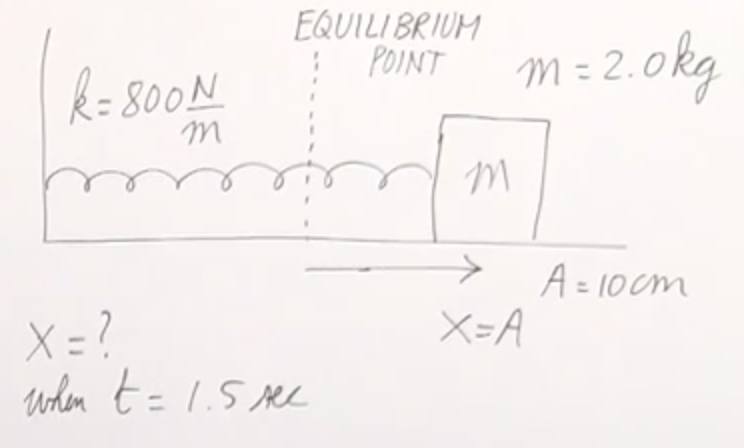 EQUILIBRIUM
POINT
m = 2.0 kg
k = 800 N/m
m
A = 10 cm
X = A
X = ?
when t = 1.5 sec